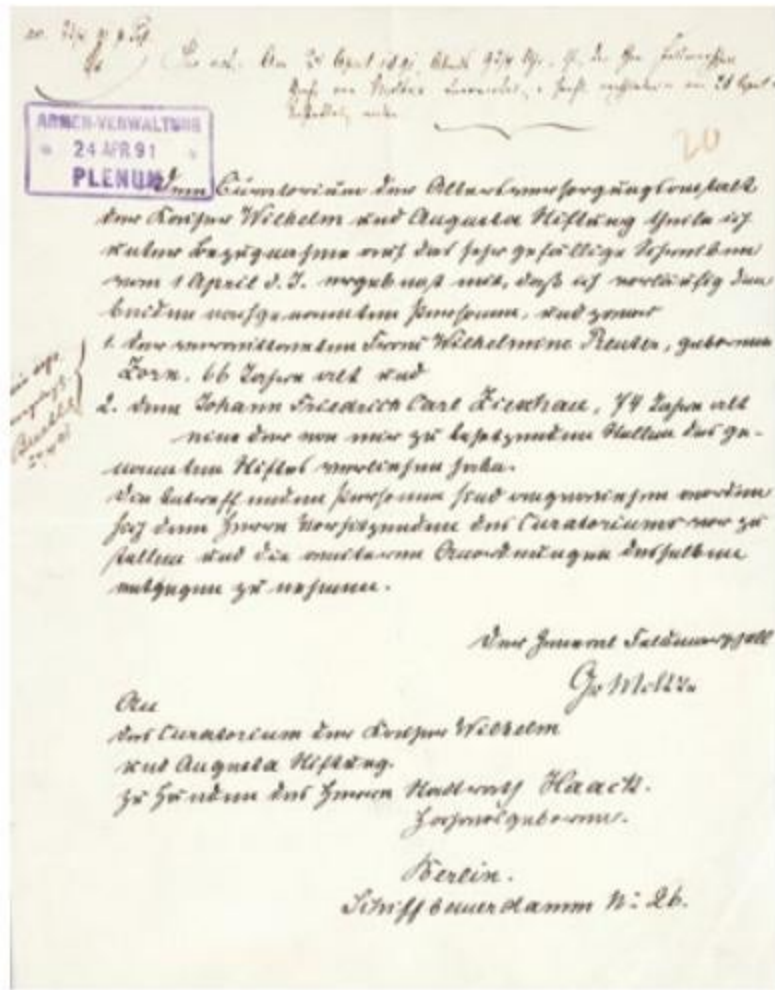 Am 24 April 1891, Abends 9 3/4 Uhr
Graf von Moltke
ARMEN-VERWALTUNG
24 APR. 91
PLENUM
20
Dem Curatorium der Altersversorgungsanstalt
der Kaiser Wilhelm und Augusta Stiftung theile ich
unter Bezugnahme auf das sehr gefällige Schreiben
vom 1 April d. J. ergebenst mit, daß ich vorläufig den
beiden nachgenannten Personen, und zwar
1. der verwittweten Frau Wilhelmine Reuter, geborenen
Zorn, 66 Jahre alt und
2. dem Johann Friedrich Carl Zienhau, 74 Jahre alt
eine der von mir zu besetzenden Stellen des ge-
nannten Stiftes verliehen habe.
Die betreffenden Personen sind angewiesen worden
sich dem Herrn Vorsitzenden des Curatoriums vor zu
stellen und die weiteren Anordnungen desselben
entgegen zu nehmen.
Der General Feldmarschall
Gr Moltke
An
das Curatorium der Kaiser Wilhelm
und Augusta Stiftung.
zu Händen des Herrn Stadtrath Haack.
Hochwohlgeboren.
Berlin.
Schiffbauerdamm No 26.